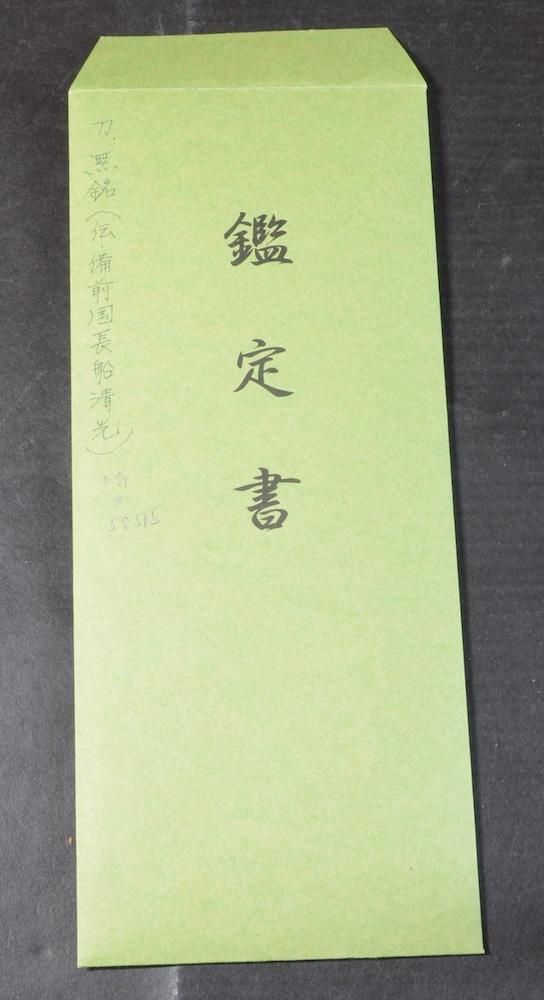 鑑定書
刀、無銘(伝・備前国長船清光)
埼
#
53515